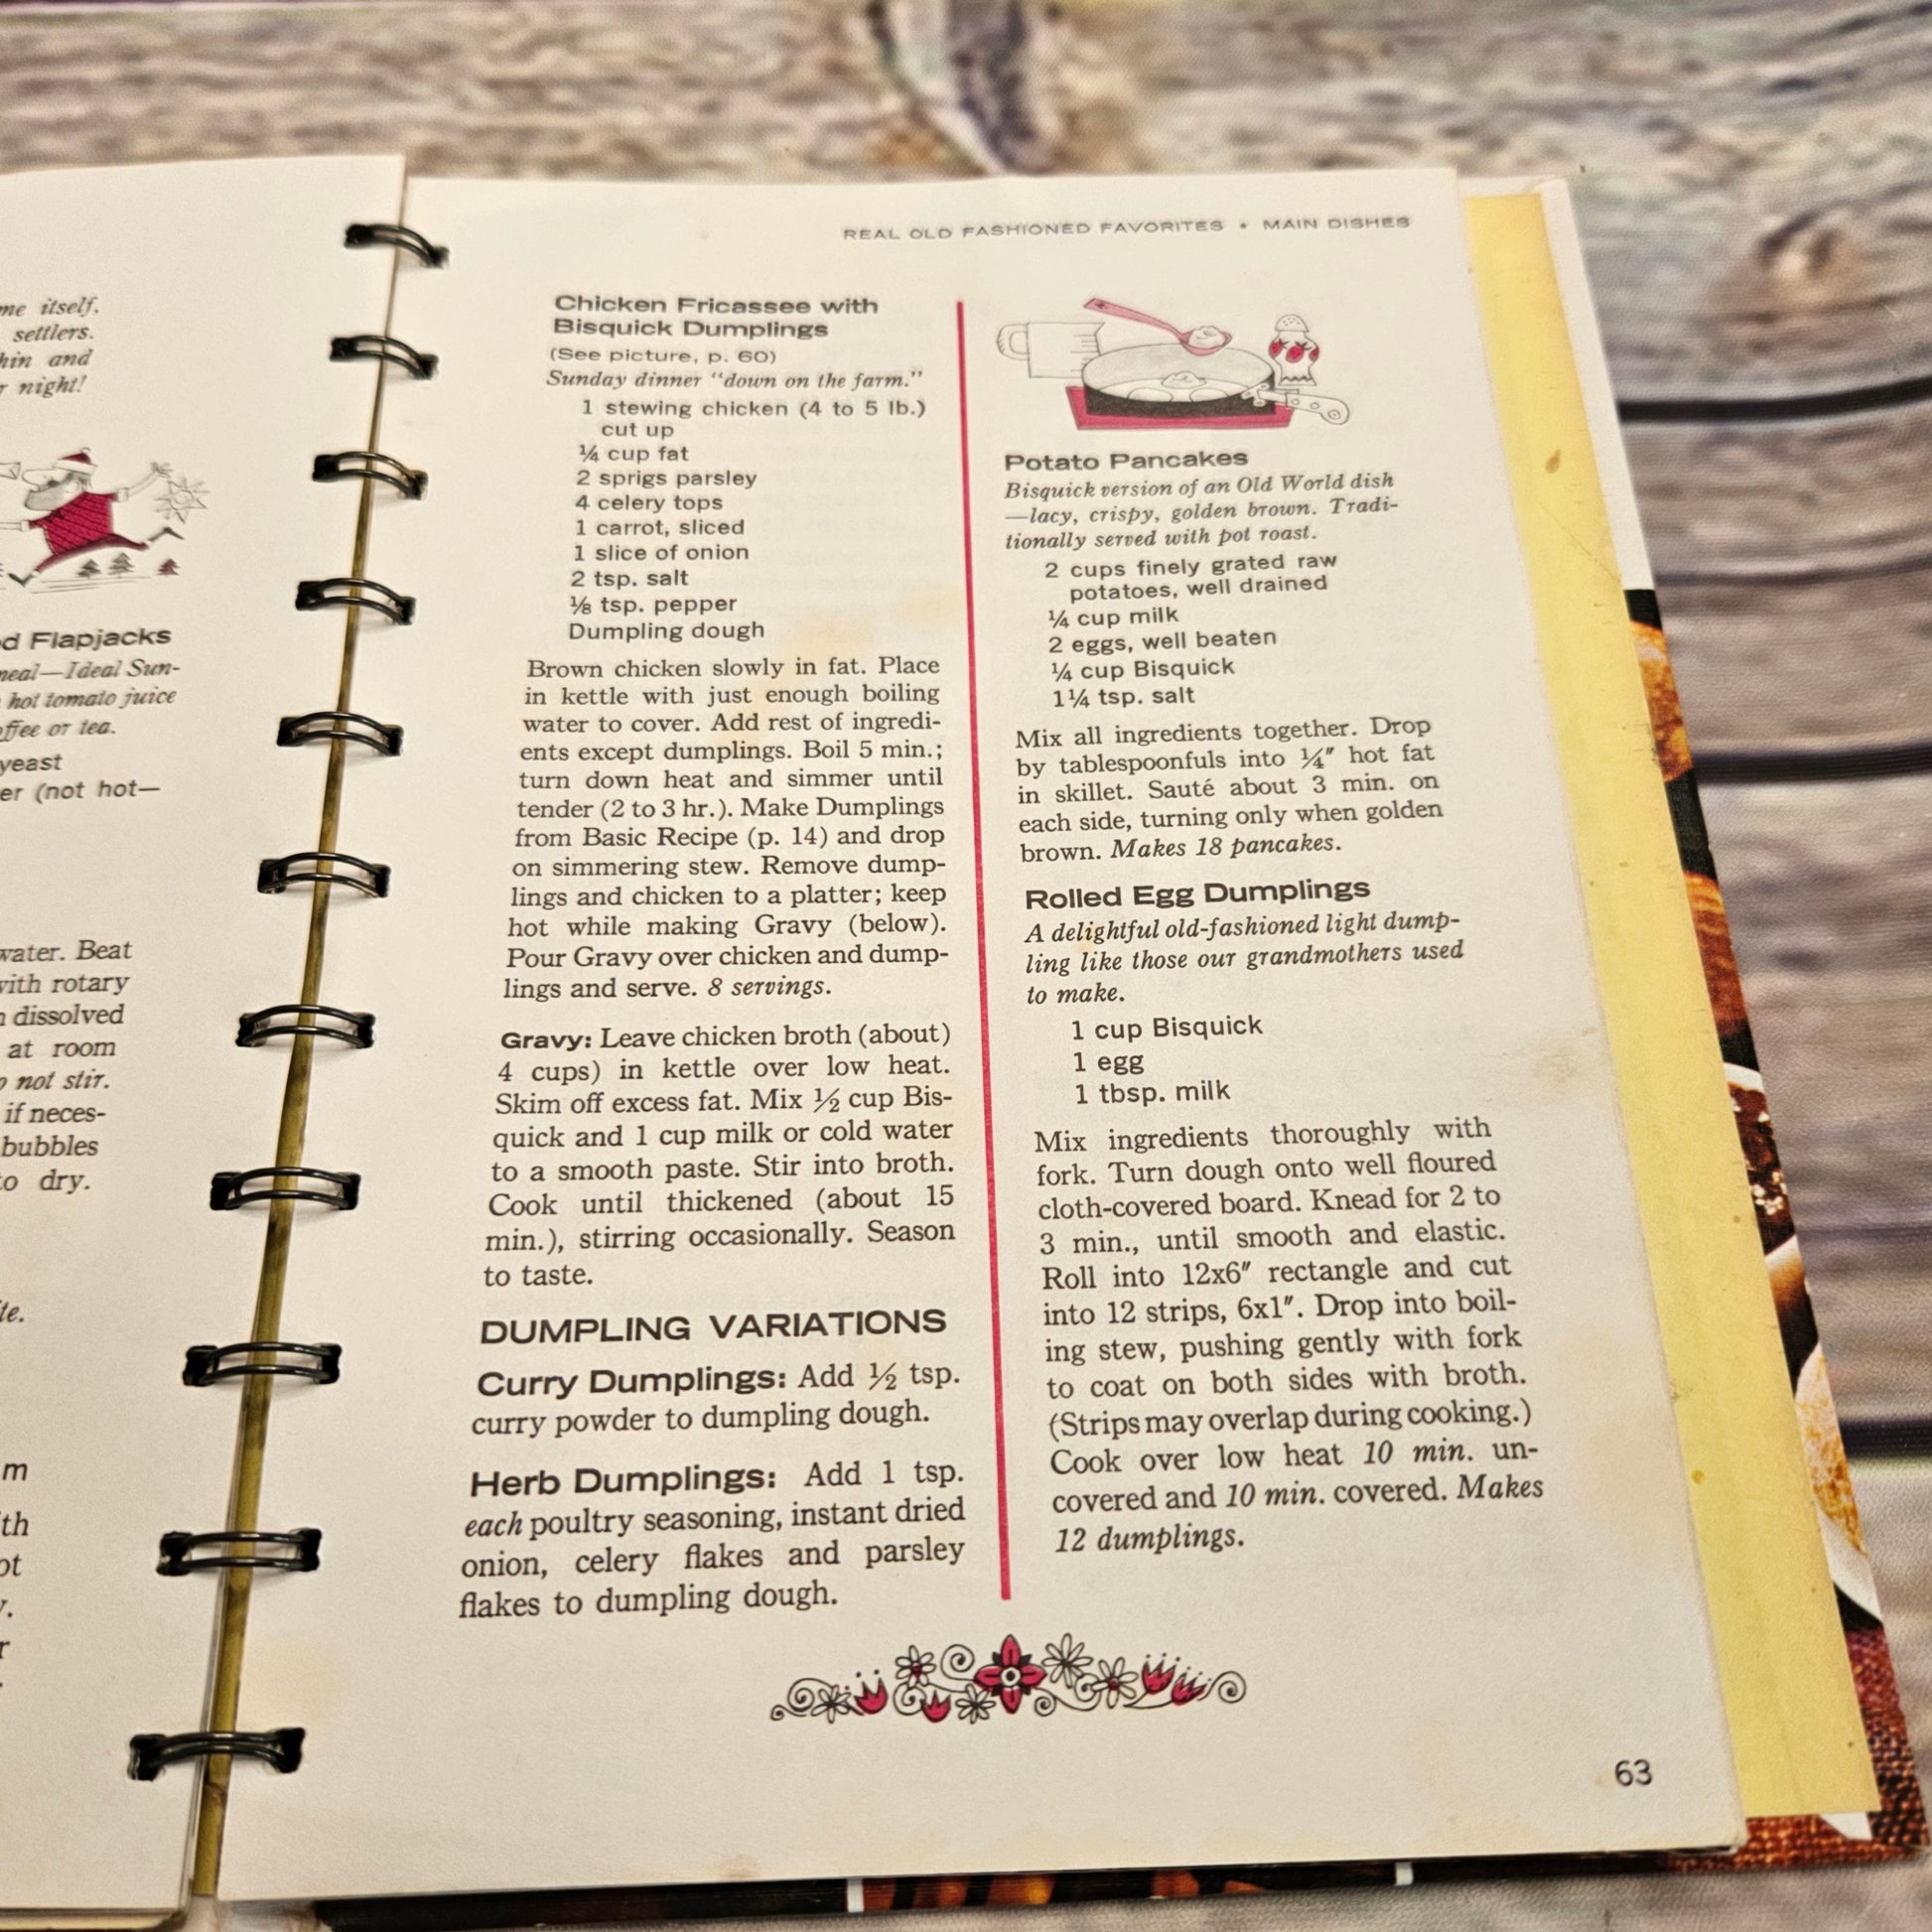 me itself,
settlers.
hin and
r night!
d Flapjacks
meal—Ideal Sun-
hot tomato juice
offee or tea.
yeast
er (not hot—
water. Beat
with rotary
n dissolved
at room
o not stir.
if neces-
bubbles
to dry.
te.
m
th
ot
y.
r
REAL OLD FASHIONED FAVORITES • MAIN DISHES
Chicken Fricassee with
Bisquick Dumplings
(See picture, p. 60)
Sunday dinner “down on the farm.”
1 stewing chicken (4 to 5 lb.)
cut up
¼ cup fat
2 sprigs parsley
4 celery tops
1 carrot, sliced
1 slice of onion
2 tsp. salt
⅛ tsp. pepper
Dumpling dough
Brown chicken slowly in fat. Place
in kettle with just enough boiling
water to cover. Add rest of ingredi-
ents except dumplings. Boil 5 min.;
turn down heat and simmer until
tender (2 to 3 hr.). Make Dumplings
from Basic Recipe (p. 14) and drop
on simmering stew. Remove dump-
lings and chicken to a platter; keep
hot while making Gravy (below).
Pour Gravy over chicken and dump-
lings and serve. 8 servings.
Gravy: Leave chicken broth (about)
4 cups) in kettle over low heat.
Skim off excess fat. Mix ½ cup Bis-
quick and 1 cup milk or cold water
to a smooth paste. Stir into broth.
Cook until thickened (about 15
min.), stirring occasionally. Season
to taste.
DUMPLING VARIATIONS
Curry Dumplings: Add ½ tsp.
curry powder to dumpling dough.
Herb Dumplings: Add 1 tsp.
each poultry seasoning, instant dried
onion, celery flakes and parsley
flakes to dumpling dough.
Potato Pancakes
Bisquick version of an Old World dish
—lacy, crispy, golden brown. Tradi-
tionally served with pot roast.
2 cups finely grated raw
potatoes, well drained
¼ cup milk
2 eggs, well beaten
¼ cup Bisquick
1¼ tsp. salt
Mix all ingredients together. Drop
by tablespoonfuls into ¼″ hot fat
in skillet. Sauté about 3 min. on
each side, turning only when golden
brown. Makes 18 pancakes.
Rolled Egg Dumplings
A delightful old-fashioned light dump-
ling like those our grandmothers used
to make.
1 cup Bisquick
1 egg
1 tbsp. milk
Mix ingredients thoroughly with
fork. Turn dough onto well floured
cloth-covered board. Knead for 2 to
3 min., until smooth and elastic.
Roll into 12x6″ rectangle and cut
into 12 strips, 6x1″. Drop into boil-
ing stew, pushing gently with fork
to coat on both sides with broth.
(Strips may overlap during cooking.)
Cook over low heat 10 min. un-
covered and 10 min. covered. Makes
12 dumplings.
63